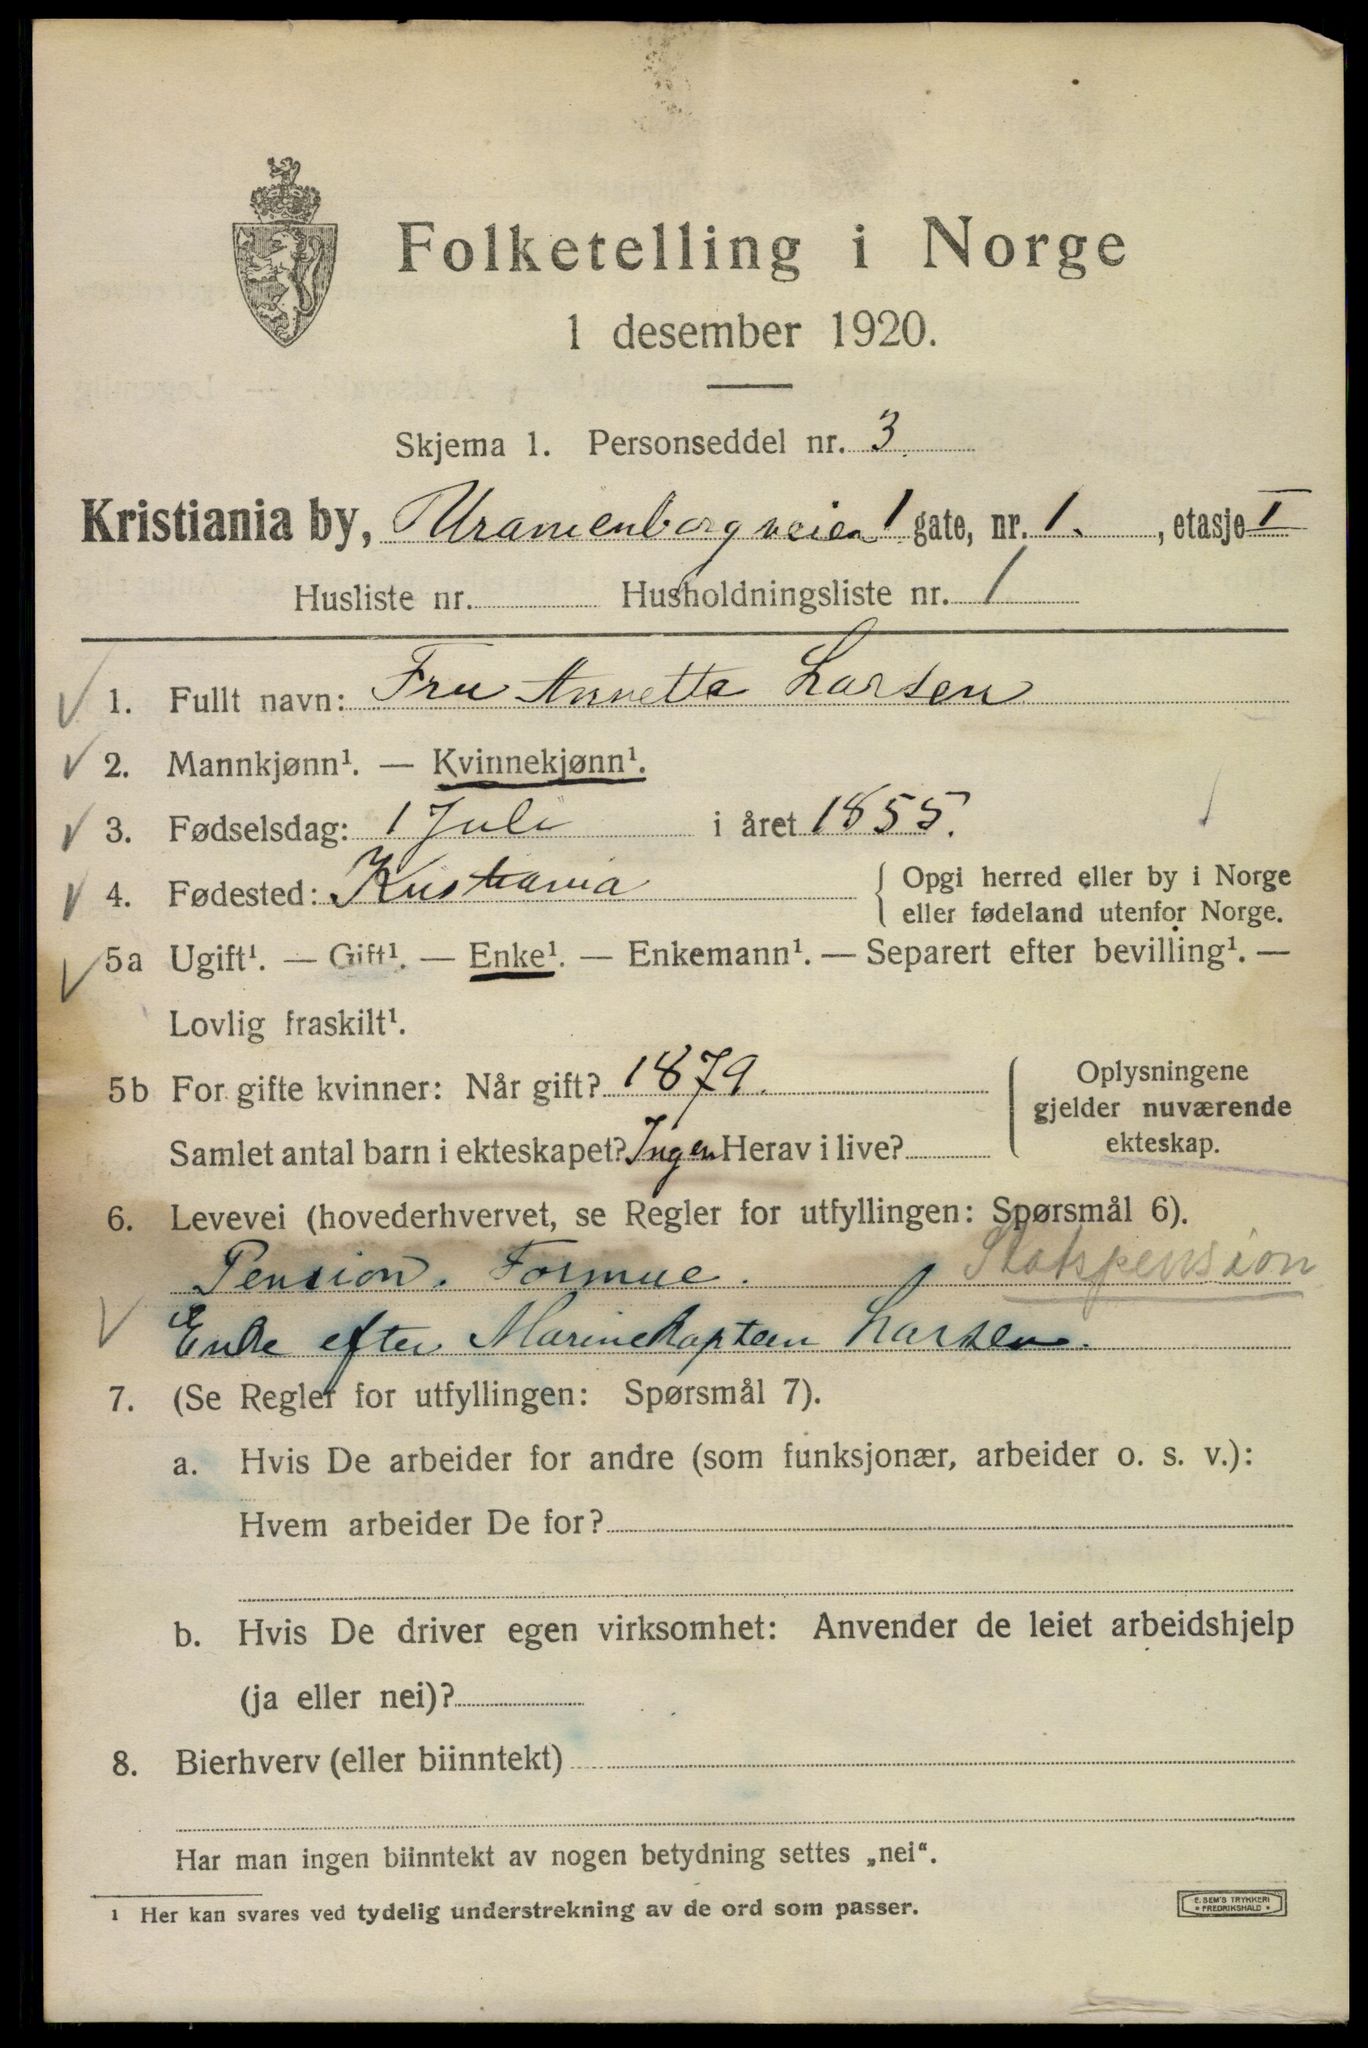 Folketelling i Norge
1 desember 1920.
Skjema 1. Personseddel nr. 3
Kristiania by, Uranienborgveien 1 gate, nr. 1. , etasje I
Husliste nr. Husholdningsliste nr. 1
1. Fullt navn: Fru Annetta Larsen
2. Mannkjønn¹. — Kvinnekjønn¹.
3. Fødselsdag: 1 Juli i året 1855.
4. Fødested: Kristiania { Opgi herred eller by i Norge
eller fødeland utenfor Norge.
5a Ugift¹. — Gift¹. — Enke¹. — Enkemann¹. — Separert efter bevilling¹. —
Lovlig fraskilt¹.
5b For gifte kvinner: Når gift? 1879.
Samlet antal barn i ekteskapet? Ingen Herav i live?
Oplysningene
gjelder nuværende
ekteskap.
6. Levevei (hovederhvervet, se Regler for utfyllingen: Spørsmål 6).
Pension. Formue. Statspension
Enke efter Marinekaptein Larsen.
7. (Se Regler for utfyllingen: Spørsmål 7).
a. Hvis De arbeider for andre (som funksjonær, arbeider o. s. v.):
Hvem arbeider De for?
b. Hvis De driver egen virksomhet: Anvender de leiet arbeidshjelp
(ja eller nei)?
8. Bierhverv (eller biinntekt)
Har man ingen biinntekt av nogen betydning settes „nei“.
¹ Her kan svares ved tydelig understrekning av de ord som passer.
E. SEM'S TRYKKERI
* FREDRIKSHALD *